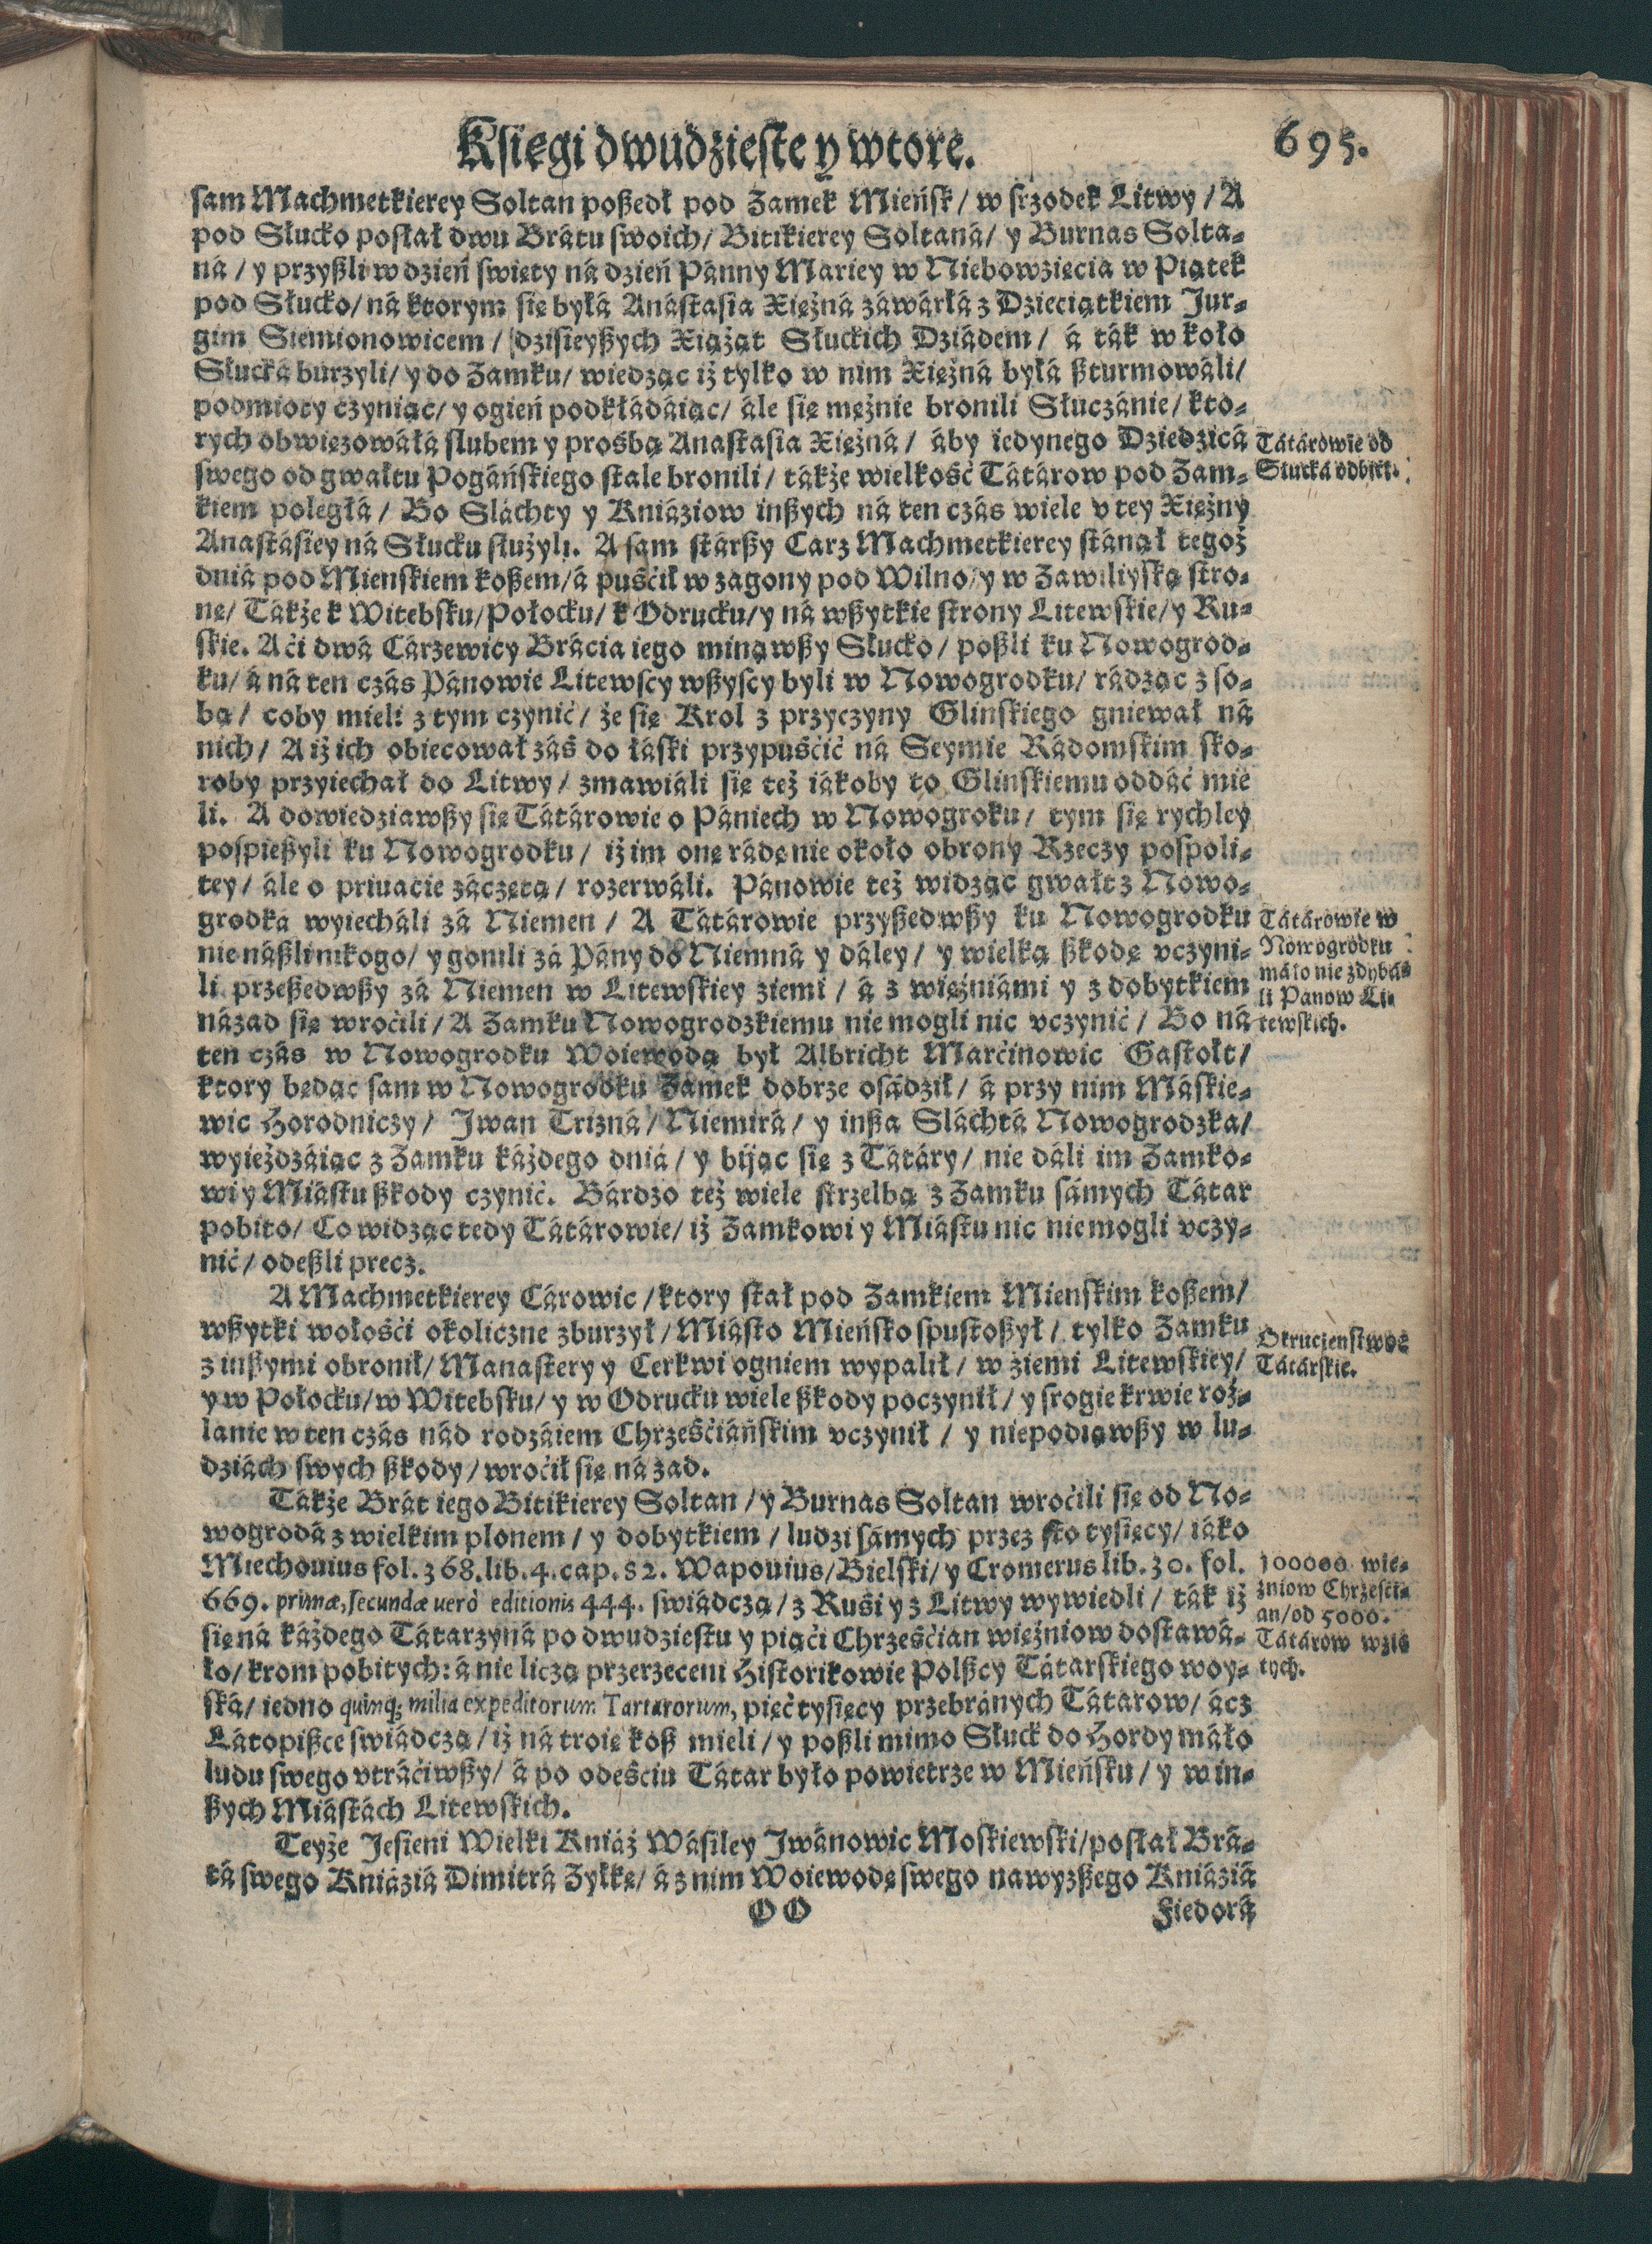 Księgi dwudzieste y wtore.
695.
sam Machmetkierey Soltan poßedł pod Zamek Mieńsk / w srzodek Litwy / A
pod Słucko posłał dwu Brátu swoich / Bitikierey Soltaná / y Burnas Solta-
ná / y przyßli w dzień swięty ná dzień Pánny Mariey w Niebowzięcia w Piątek
pod Słucko / ná ktorym się byłá Anástasia Xiężná záwárłá z Dzieciątkiem Jur-
gim Siemionowicem / dzisieyßych Xiążąt Słuckich Dziádem / á ták w koło
Słucká burzyli / y do Zamku / wiedząc iż tylko w nim Xiężná byłá ßturmowáli /
podmioty czyniąc / y ogień podkłádáiąc / ále się mężnie bronili Słuczánie / kto-
rych obwięzowáłá slubem y prośbą Anastasia Xiężná / áby iedynego Dziedzicá
swego od gwałtu Pogáńskiego stale bronili / tákże wielkość Tátárow pod Zam-
kiem poległá / Bo Sláchty y Kniáziow inßych ná ten czás wiele v tey Xiężny
Anastásiey ná Słucku służyli. A sam stárßy Carz Machmetkierey stánął tegoż
dniá pod Mienskiem koßem / á puśćił w zagony pod Wilno / y w Zawiliyską stro-
nę / Tákże k Witebsku / Połocku / k Odrucku / y ná wßytkie strony Litewskie / y Ru-
skie. A ći dwá Cárzewicy Brácia iego minąwßy Słucko / poßli ku Nowogrod-
ku / á ná ten czás Pánowie Litewscy wßyscy byli w Nowogrodku / rádząc z so-
bą / coby mieli z tym czynić / że się Krol z przyczyny Glinskiego gniewał ná
nich / A iż ich obiecował záś do łáski przypuśćić ná Seymie Rádomskim sko-
roby przyiechał do Litwy / zmawiáli się też iákoby to Glinskiemu oddáć mie
li. A dowiedziawßy się Tátárowie o Pániech w Nowogroku / tym się rychley
pospießyli ku Nowogrodku / iż im onę rádę nie około obrony Rzeczy pospoli-
tey / ále o priuacie záczętą / rozerwáli. Pánowie też widząc gwałt z Nowo-
grodká wyiecháli zá Niemen / A Tátárowie przyßedwßy ku Nowogrodku
nie náßli nikogo / y gonili zá Pány do Niemná y dáley / y wielką ßkodę vczyni-
li przeßedwßy zá Niemen w Litewskiey ziemi / á z więźniámi y z dobytkiem
názad się wroćili / A Zamku Nowogrodzkiemu nie mogli nic vczynić / Bo ná
ten czás w Nowogrodku Woiewodą był Albricht Marćinowic Gastołt /
ktory będąc sam w Nowogrodku Zamek dobrze osádził / á przy nim Máskie-
wic Horodniczy / Jwan Trizná / Niemirá / y inßa Sláchtá Nowogrodzka /
wyieżdzáiąc z Zamku káżdego dniá / y bijąc się z Tátáry / nie dáli im Zamko-
wi y Miástu ßkody czynić. Bárdzo też wiele strzelbą z Zamku sámych Tátar
pobito / Co widząc tedy Tátárowie / iż Zamkowi y Miástu nic nie mogli vczy-
nić / odeßli precz.
A Machmetkierey Cárowic / ktory stał pod Zamkiem Mienskim koßem /
wßytki wołośći okoliczne zburzył / Miásto Mieńsko spustoßył / tylko Zamku
z inßymi obronił / Manastery y Cerkwi ogniem wypalił / w ziemi Litewskiey /
y w Połocku / w Witebsku / y w Odrucku wiele ßkody poczynił / y srogie krwie roz-
lanie w ten czás nád rodzáiem Chrześćiáńskim vczynił / y niepodiąwßy w lu-
dziách swych ßkody / wroćił się ná zad.
Tákże Brát iego Bitikierey Soltan / y Burnas Soltan wroćili się od No-
wogrodá z wielkim plonem / y dobytkiem / ludzi sámych przez sto tysięcy / iáko
Miechouius fol. 368. lib. 4. cap. 82. Wapouius / Bielski / y Cromerus lib. 30. fol.
669. primæ, secundæ uerò editionis 444. swiádczą / z Ruśi y z Litwy wywiedli / ták iż
się ná káżdego Tátarzyná po dwudziestu y piąći Chrześćian więźniow dostawá-
ło / krom pobitych: á nie liczą przerzeceni Historikowie Polßcy Tátarskiego woy-
ská / iedno quinq; milia expeditorum Tartarorum, pięć tysięcy przebránych Tátarow / ácz
Látopißce swiádczą / iż ná troie koß mieli / y poßli mimo Słuck do Hordy máło
ludu swego vtráćiwßy / á po odeśćiu Tátar było powietrze w Mieńsku / y w in-
ßych Miástách Litewskich.
Teyże Jesieni Wielki Kniáź Wásiley Jwánowic Moskiewski / posłał Brá-
tá swego Kniáziá Dimitrá Zyłkę / á z nim Woiewodę swego nawyzßego Kniáziá
OO
Fiedorá
Tátárowie od
Słucká odbići.
Tátárowie w
Nowogrodku
máło nie zdybá-
li Panow Li-
tewskich.
Okruczenstwoe
Tátárskie.
100000 wię-
źniow Chrześći-
an / od 5000.
Tátárow wzię
tych.